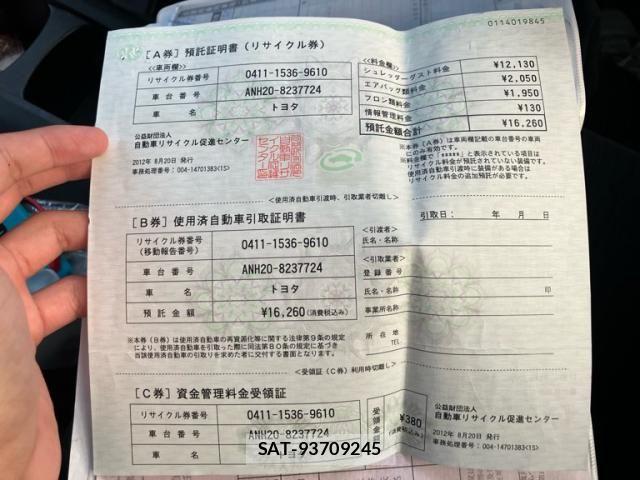 0114019845
[A券]預託証明書(リサイクル券)
<<車両欄>>
リサイクル券番号 0411-1536-9610
車台番号 ANH20-8237724
車名 トヨタ
<<料金欄>>
シュレッダーダスト料金 ¥12,130
エアバッグ類料金 ¥2,050
フロン類料金 ¥1,950
情報管理料金 ¥130
預託金額合計 ¥16,260
公益財団法人
自動車リサイクル促進センター
2012年 8月20日 発行
事務処理番号:004-14701383(1S)
※本券(A券)は車両欄記載の車台番号の車両
にのみ有効です。
※料金欄で「****」と表示されている項目は
リサイクル料金が預託されていない装備です。
使用済自動車引渡時に装備がある場合は
リサイクル料金の追加預託が必要です。
<使用済自動車引渡時、引取業者切離し>
[B券]使用済自動車引取証明書
引取日: 年 月 日
リサイクル券番号
(移動報告番号) 0411-1536-9610
車台番号 ANH20-8237724
車名 トヨタ
預託金額 ¥16,260(消費税込み)
<引渡者>
氏名・名称
<引取業者>
登録番号
氏名・名称 印
事業所名称
所在地
TEL
※本券(B券)は使用済自動車の再資源化等に関する法律第9条の規定
により、使用済自動車を引取った際に同法第80条の規定に基づき
当該使用済自動車の引取りを求めた者に交付する書面となります。
<受領証(C券)利用時切離し>
[C券]資金管理料金受領証
リサイクル券番号 0411-1536-9610
車台番号 ANH20-8237724
車名 トヨタ
受領金額
¥380
(消費税込み)
公益財団法人
自動車リサイクル促進センター
2012年 8月20日 発行
事務処理番号:004-14701383(1S)
SAT-93709245